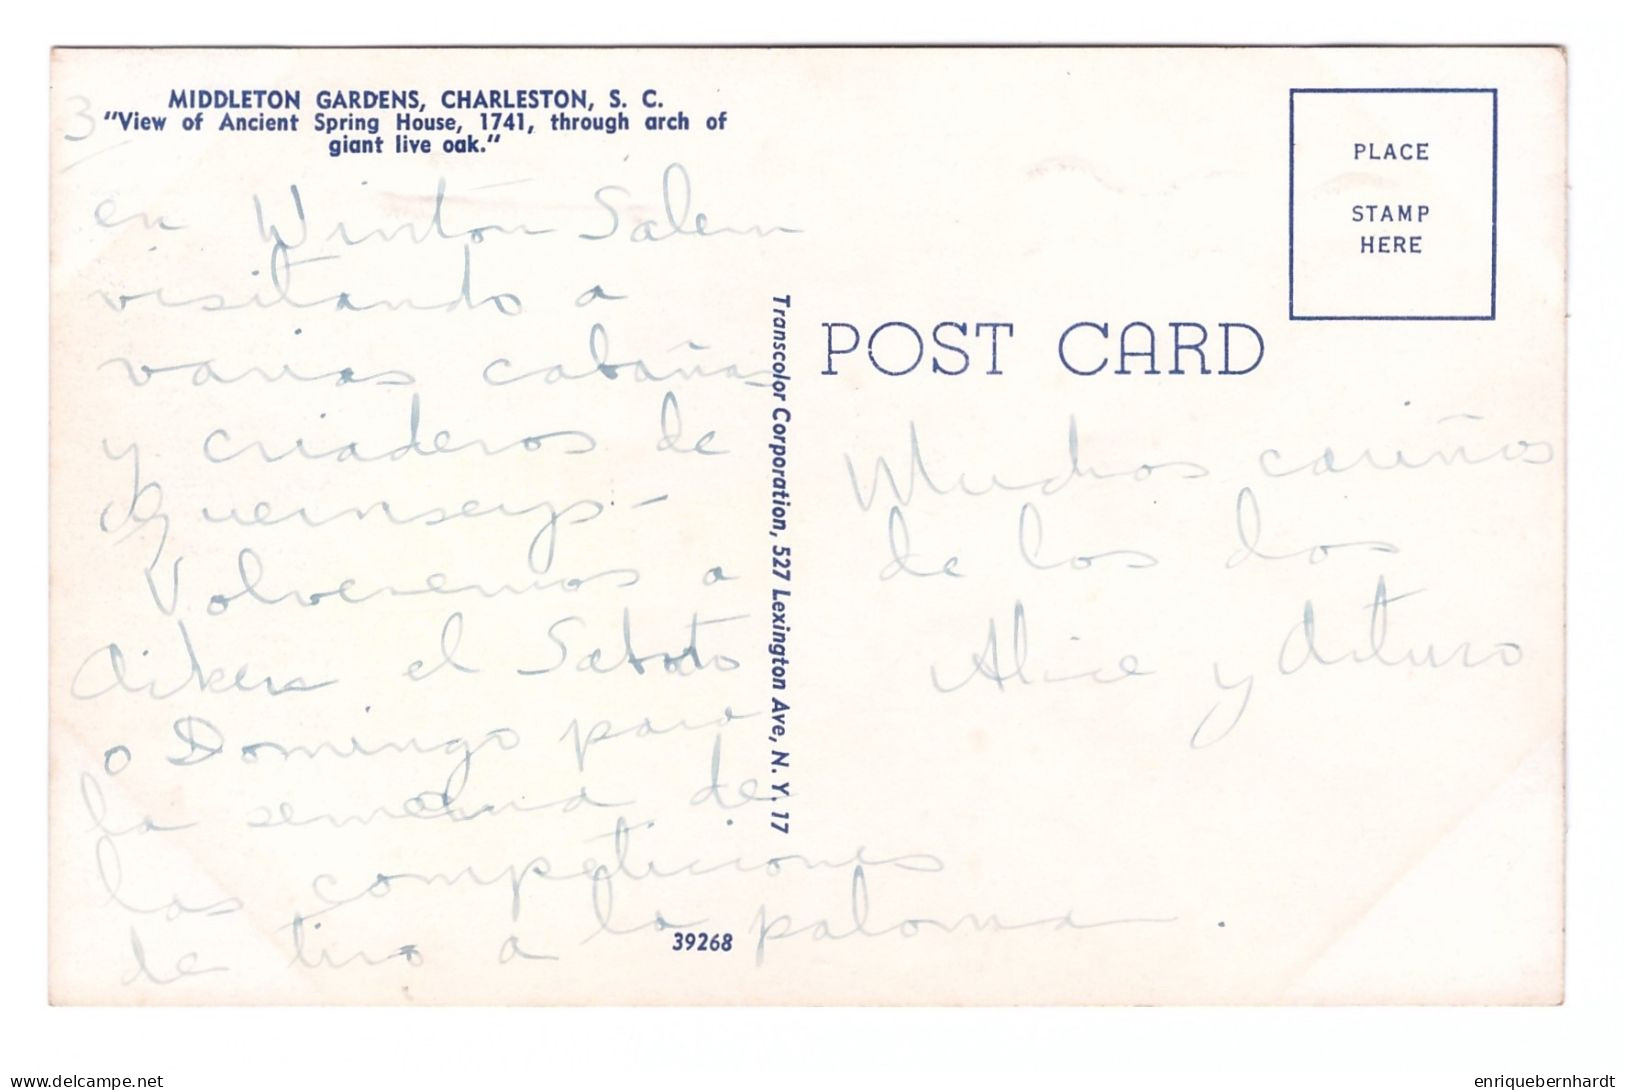 MIDDLETON GARDENS, CHARLESTON, S. C.
"View of Ancient Spring House, 1741, through arch of
giant live oak."
3
en Winton Salem
visitando a
varias cabañas
y criaderos de
Guernseys -
Volveremos a
Aiken el Sabato
o Domingo para
la semana de
las competiciones
de tiro a la paloma.
39268
Transcolor Corporation, 527 Lexington Ave, N. Y. 17
PLACE
STAMP
HERE
POST CARD
Muchos cariños
de los dos
Alice y Arturo
www.delcampe.net
enriquebernhardt